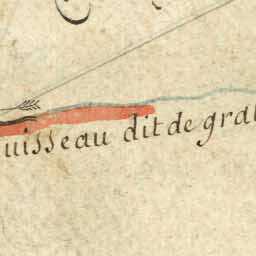 uisseau dit de gra